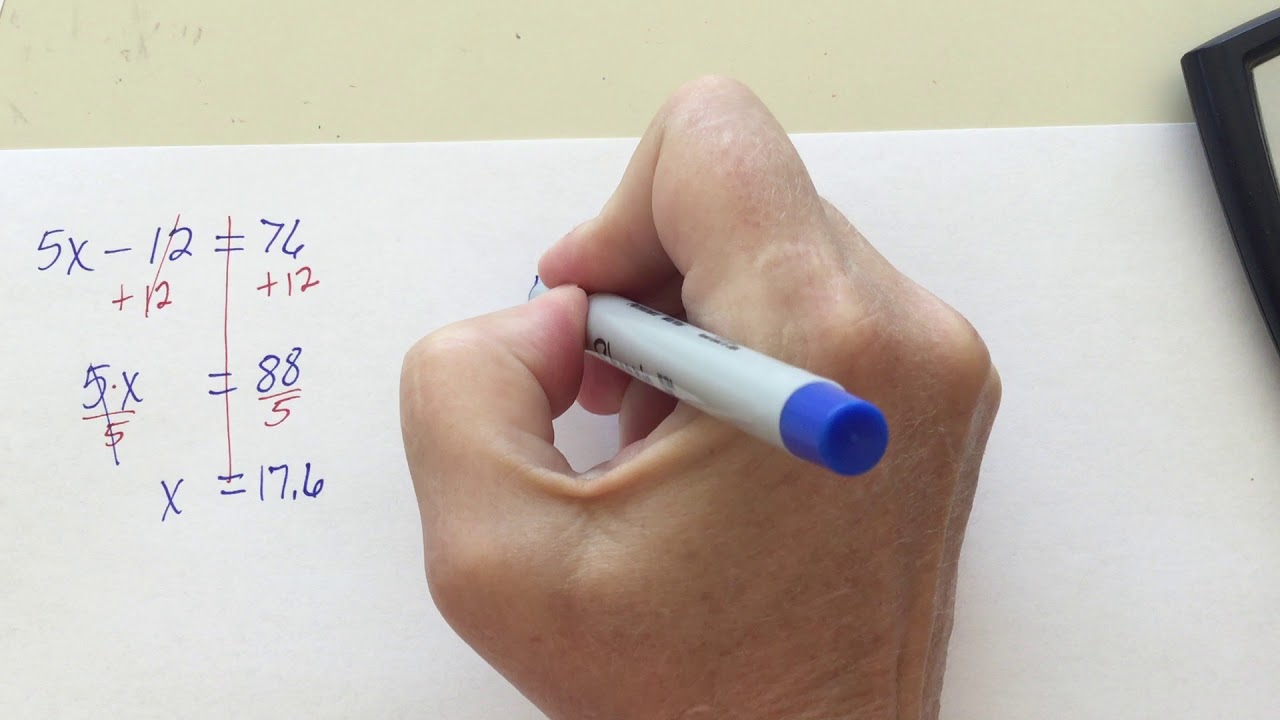 5x - 12 = 76
+12 +12
5·x = 88
5 5
x = 17.6